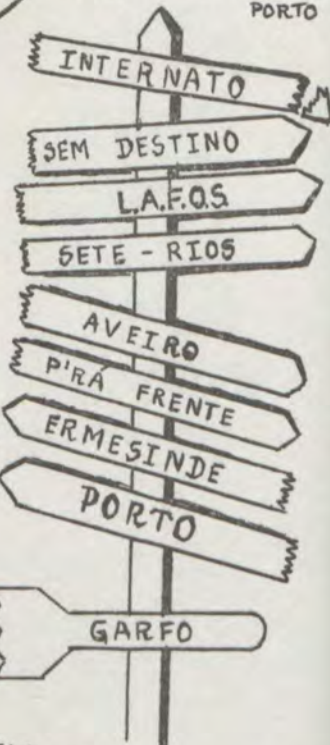 PORTO
INTERNATO
SEM DESTINO
L.A.F.O.S.
SETE - RIOS
AVEIRO
P'RÁ FRENTE
ERMESINDE
PORTO
GARFO